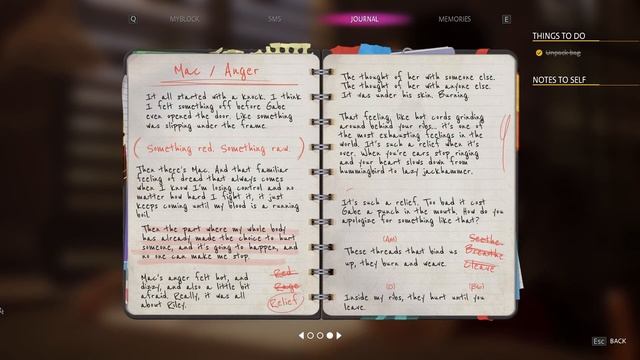 Q
MYBLOCK
SMS
JOURNAL
MEMORIES
E
THINGS TO DO
Unpack bag
NOTES TO SELF
Mac / Anger
It all started with a knock. I think
I felt something off before Gabe
even opened the door. Like something
was slipping under the frame.
(Something red. Something raw.)
Then there's Mac. And that familiar
feeling of dread that always comes
when I know I'm losing control and no
matter how hard I fight it, it just
keeps coming until my blood is a running
boil.
Then the part where my whole body
has already made the choice to hurt
someone, and it's going to happen, and
no one can make me stop.
Mac's anger felt hot, and
dizzy, and also a little bit
afraid. Really, it was all
about Riley.
Red
Rage
Relief
The thought of her with someone else.
The thought of her with anyone else.
It was under his skin. Burning.
That feeling, like hot cords grinding
around behind your ribs... it's one of
the most exhausting feelings in the
world. It's such a relief when it's
over. When you're ears stop ringing
and your heart slows down from
hummingbird to lazy jackhammer.
It's such a relief. Too bad it cost
Gabe a punch in the mouth. How do you
apologize for something like that?
(Am)
These threads that bind us
up, they burn and weave.
Seethe
Breathe
Cleave
(D)
Inside my ribs, they hurt until you
leave.
Esc
BACK